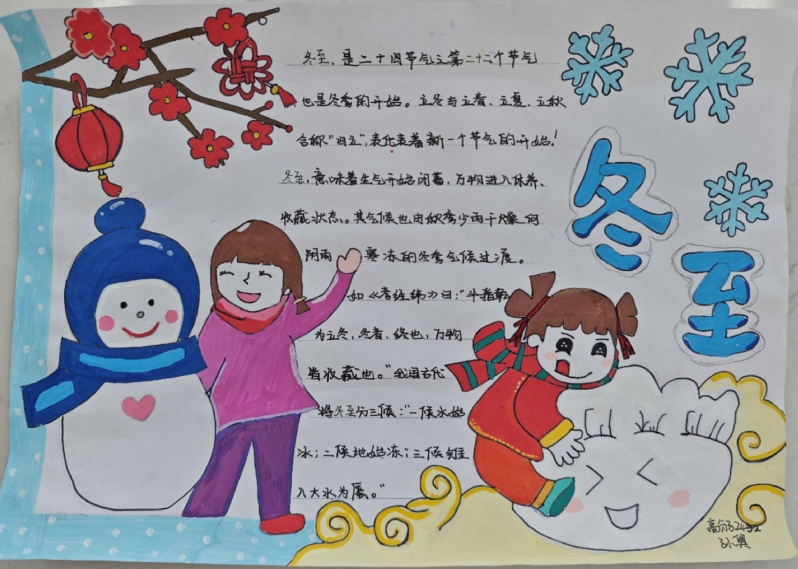 冬至,是二十四节气之第二十二个节气
也是冬季的开始。立冬与立春、立夏、立秋
合称"四立",表代表着新一个节气的开始!
冬至,意味着生气开始闭蓄,万物进入休养、
收藏状态。其气候也由秋季少雨干燥向
阴雨 寒冻的冬季气候过渡。
如《孝经纬》曰:"斗指乾
为立冬,冬者,终也,万物
皆收藏也。"我国古代
将冬至分三候:"一候水始
冰;二候地始冻;三候雉
入大水为蜃。"
冬
至